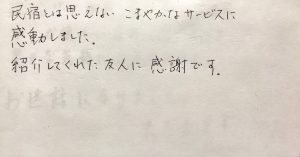 民宿とは思えない こまやかなサービスに
感動しました。
紹介してくれた友人に 感謝です。